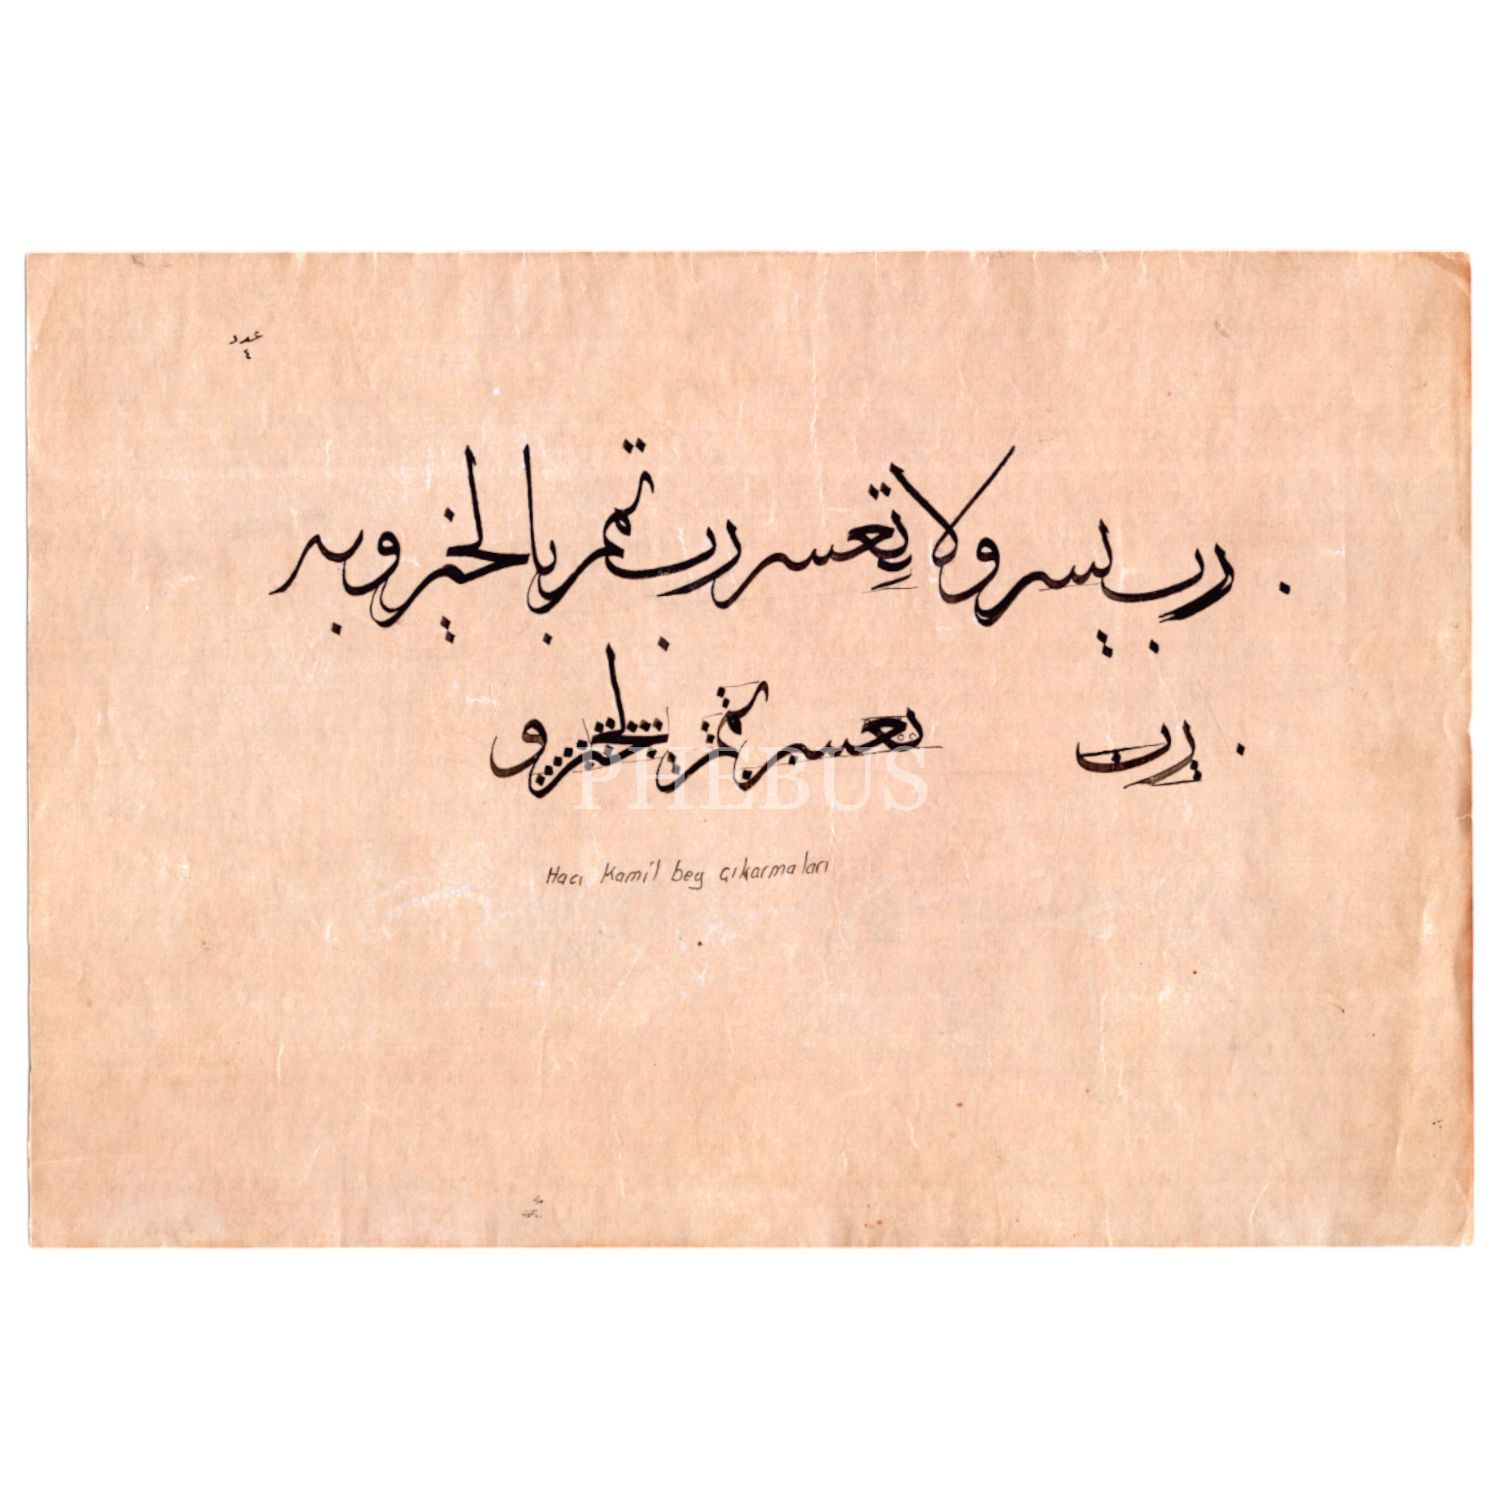 عدد
٤
رب يسر ولا تعسر رب تمم بالخير وبه
رب تعسر تمم بالخير و
PHEBUS
Hacı Kamil bey çıkarmaları